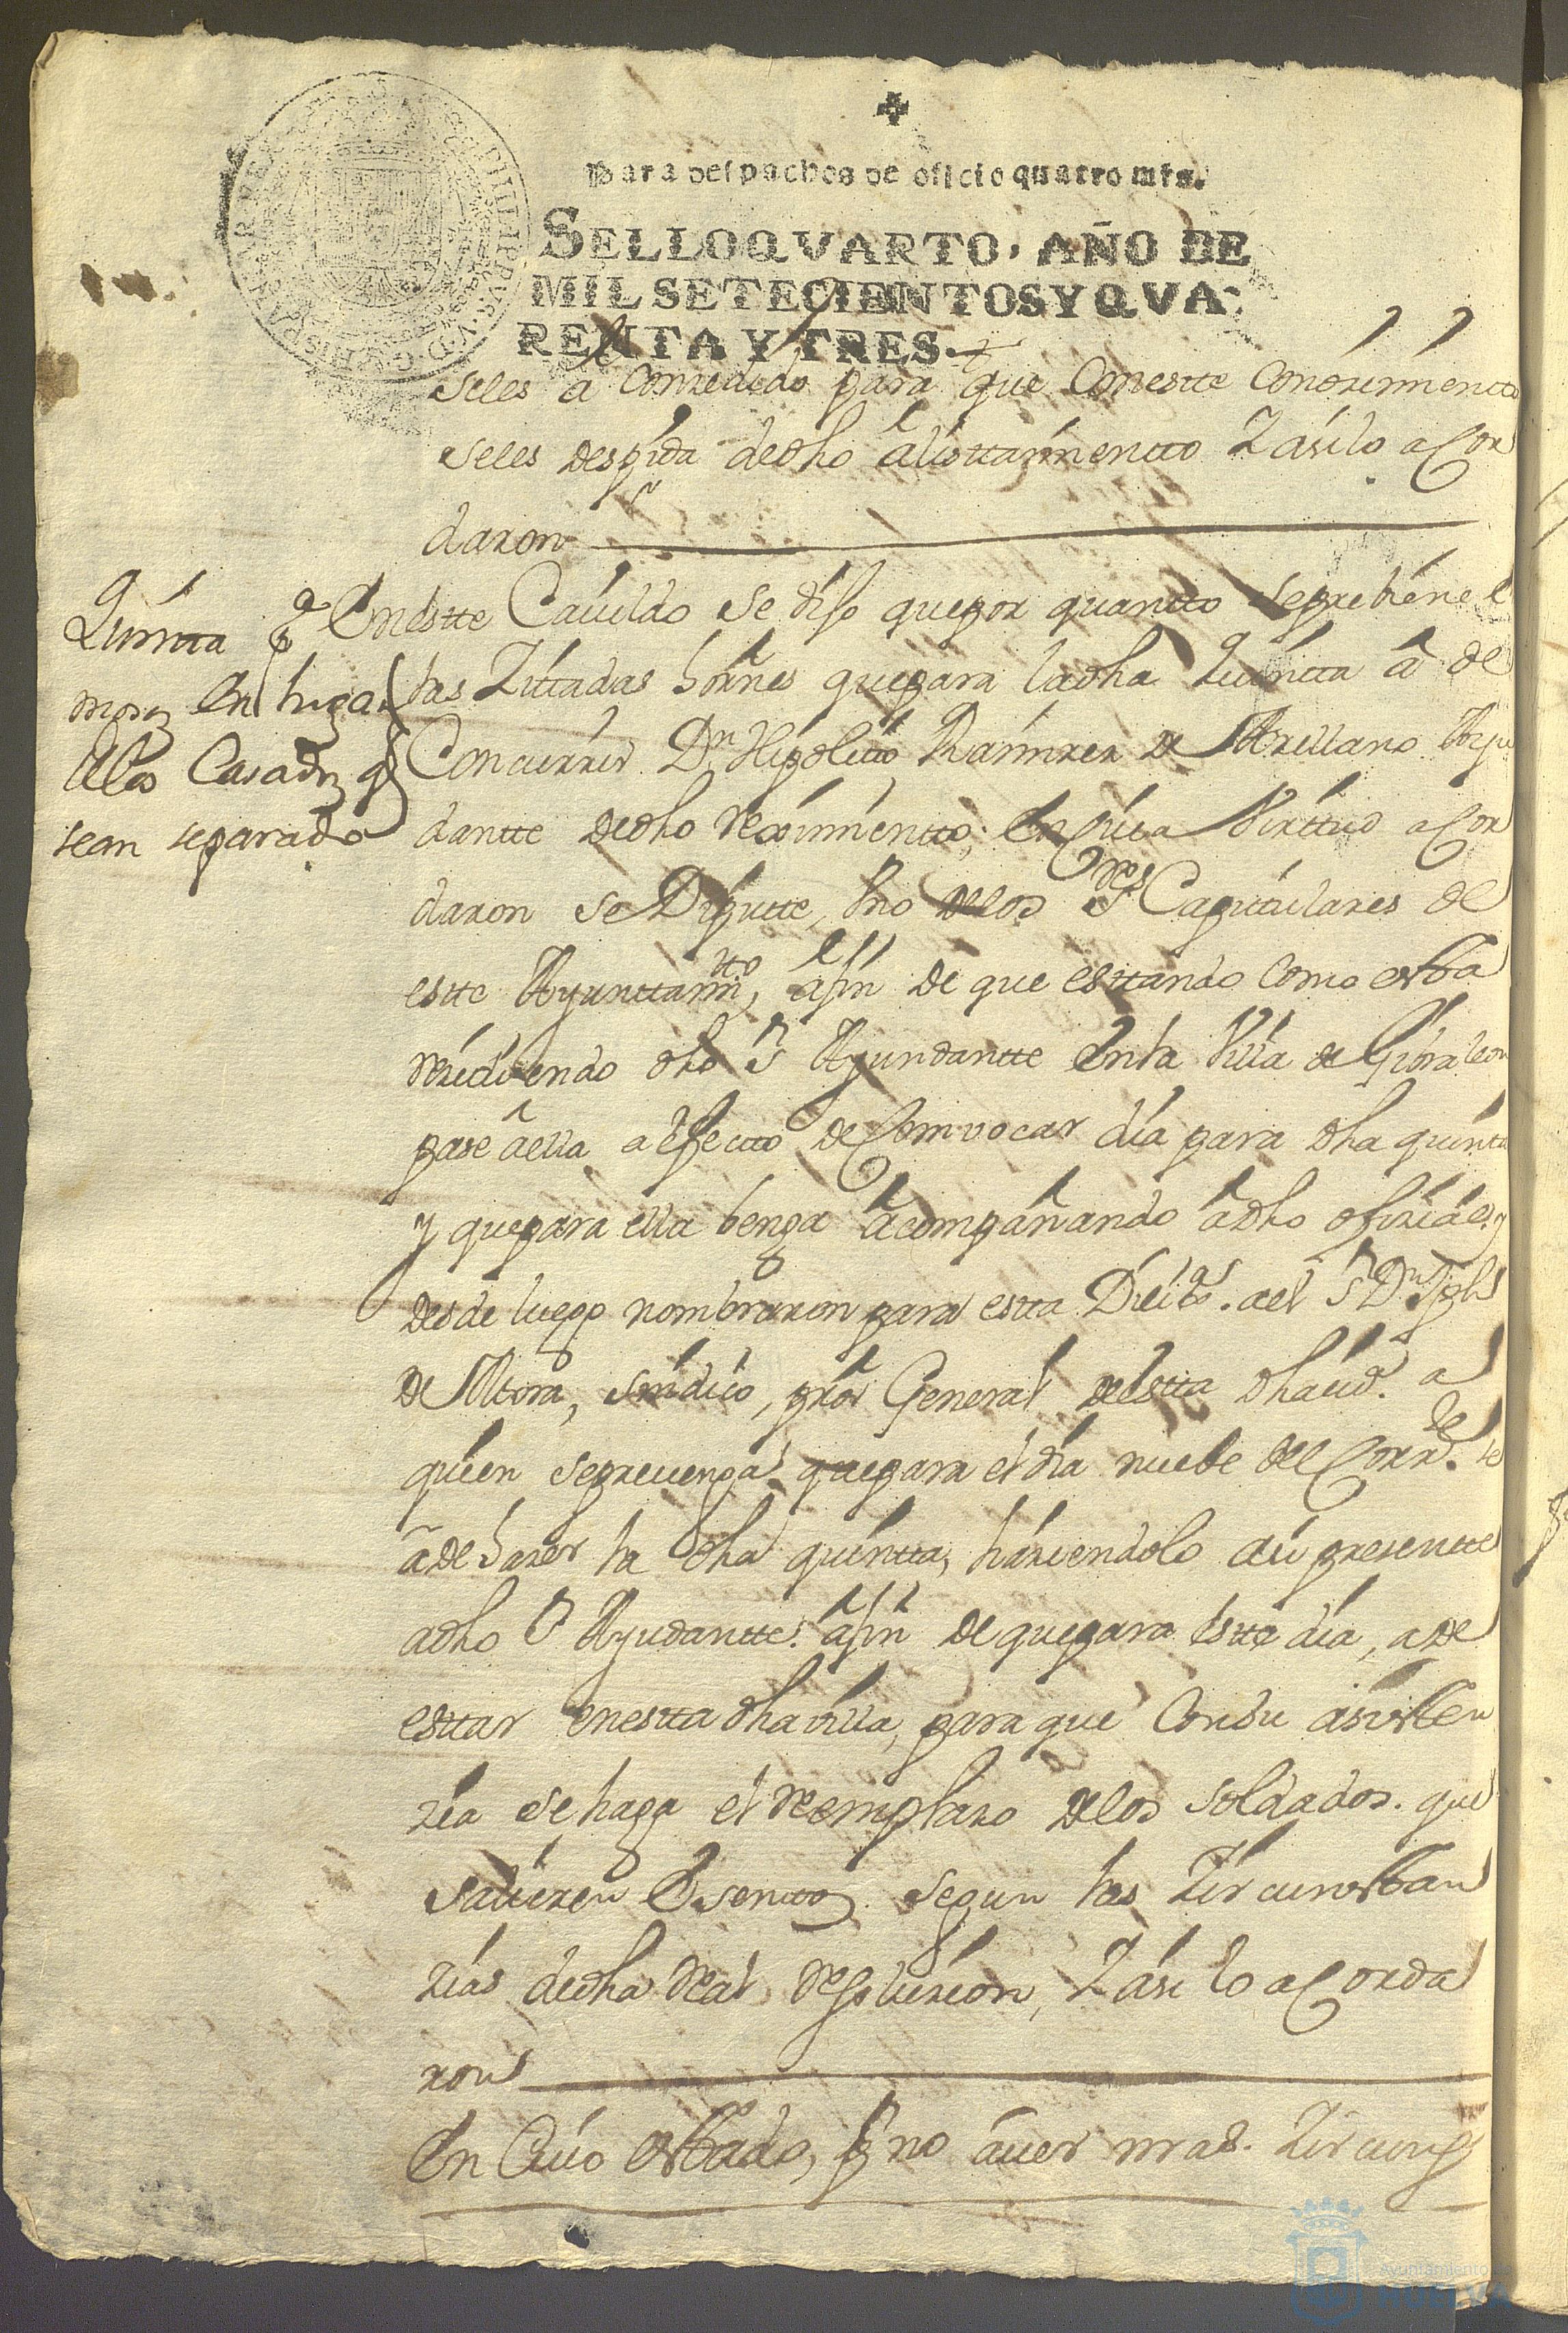 Para despachos de oficio quatro mrs.
SELLO QVARTO, AÑO DE
MIL SETECIENTOS Y QVA-
RENTA Y TRES.
seles a Conzedido para que Conestte Conozimientto
seles despida dedho alisttamientto Y asilo aCor
daron
Quintta pa
mozos En lugar
delos Casados qe
sean separado
Enestte Cavildo se dijo quepor quantto seprebiene
las Zittadas hornes quepara ladha Quintta a de
Concurrir Dn Hipolitto Ramirez de Arellano Ayu
dantte dedho reximientto, En Cuia Virttud aCor
daron se Diputte, Vno delos Sres Capitulares de
estte Ayunttamto, afin de que esttando como estta
residiendo dho Sr Ayundantte Enla Villa de Gibraleon
pase aella a Efectto de Comvocar dia para dha quintta
y quepara ella benga acompañando adho ofizial, y
desde luego nombraron para estta al Sr Dn
de Mora, sindico, pror General deestta dha
quien seprevenga quepara el dia nuebe del Corrte se
a de hazer la dha quintta, haziendolo asi presentte
adho Sr Ayudantte. afin de quepara Estte dia, a de
esttar enestta dha villa, para que Consu asistten
zia se haga el reemplazo delos soldados. que
salieren Esenttos segun las Zircunsttan
zias dedha real resoluzion, Y asi lo aCorda
ron
En Cuio esttado, por no aver mas
Ayuntamiento de
HUELVA